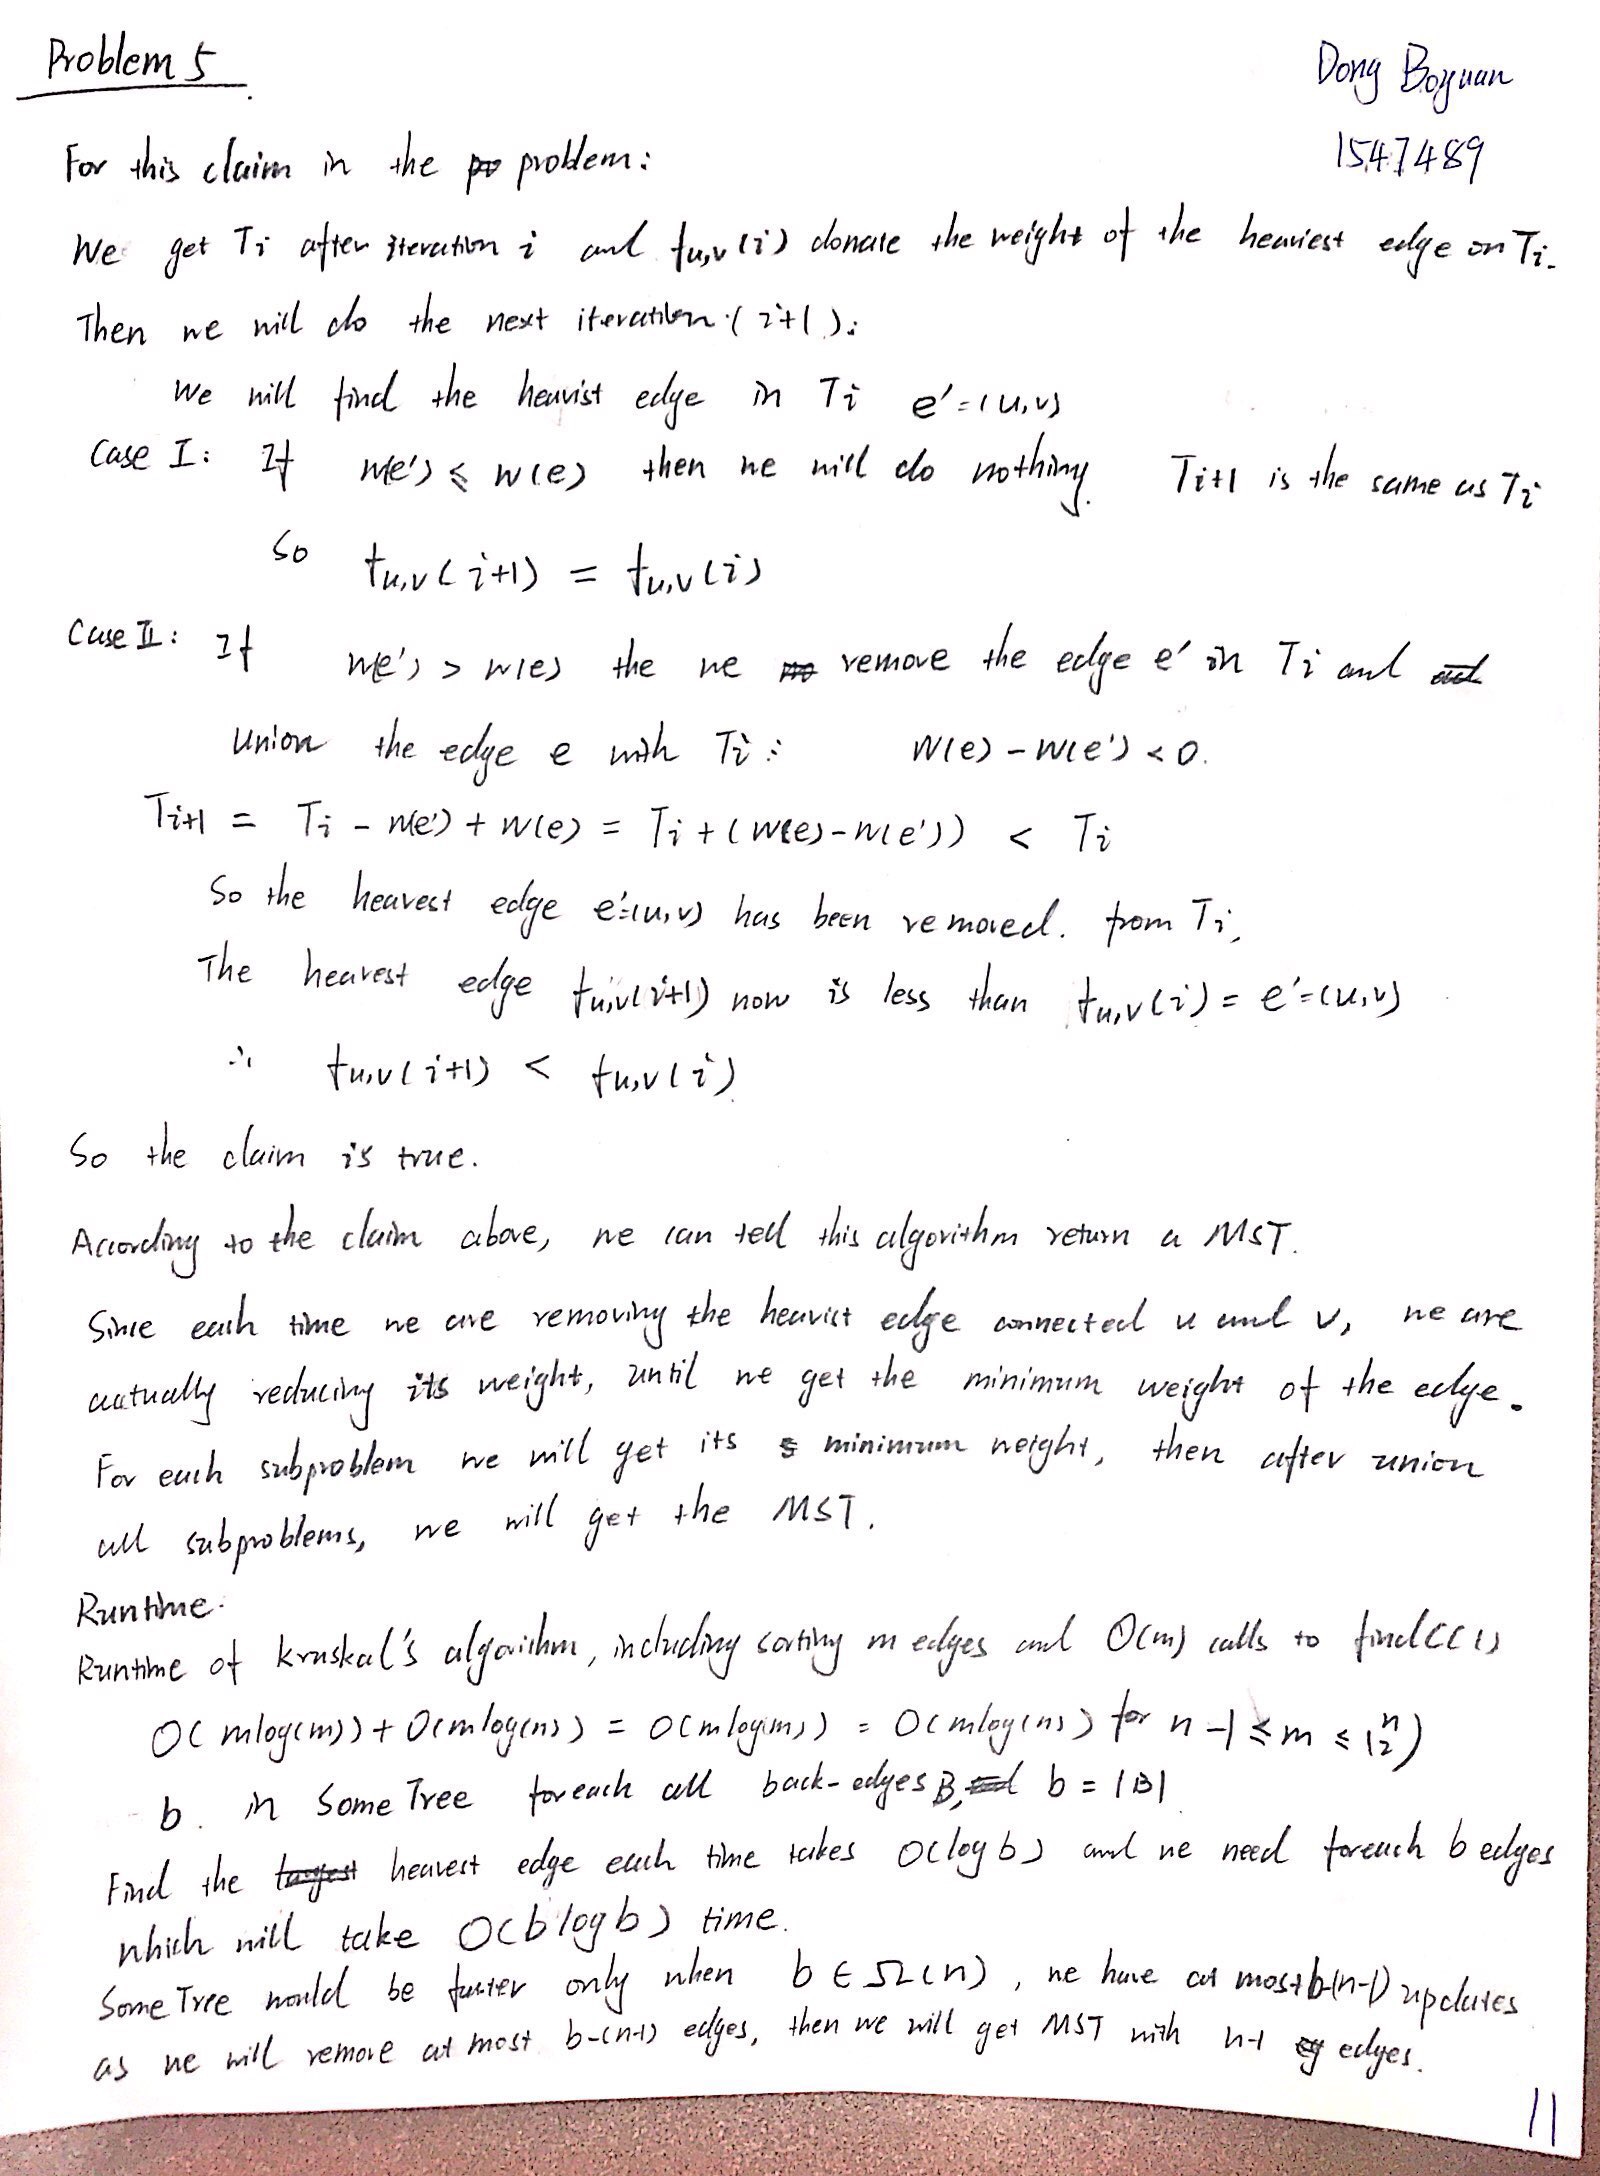 Problem 5
Dong Boyuan
1547489
For this claim in the problem:
We get Ti after iteration i and fu,v(i) donate the weight of the heaviest edge on Ti.
Then we will do the next iteration (i+1):
We will find the heavist edge in Ti e'=(u,v)
Case I: If w(e') ≤ w(e) then we will do nothing. Ti+1 is the same as Ti
So fu,v(i+1) = fu,v(i)
Case II: If w(e') > w(e) the we remove the edge e' in Ti and
Union the edge e with Ti: w(e) - w(e') < 0.
Ti+1 = Ti - w(e') + w(e) = Ti + (w(e) - w(e')) < Ti
So the heavest edge e'=(u,v) has been removed. from Ti,
The heavest edge fu,v(i+1) now is less than fu,v(i) = e'=(u,v)
∴ fu,v(i+1) < fu,v(i)
So the claim is true.
According to the claim above, we can tell this algorithm return a MST.
Since each time we are removing the heavist edge connected u and v, we are
actually reducing its weight, until we get the minimum weight of the edge.
For each subproblem we will get its minimum weight, then after union
all subproblems, we will get the MST.
Runtime.
Runtime of kruskal's algorithm, including sorting m edges and O(m) calls to findCC()
O(mlog(m)) + O(mlog(n)) = O(mlog(m)) = O(mlog(n)) for n-1 ≤ m ≤ (n 2)
b. in SomeTree foreach all back-edges B, b = |B|
Find the heavest edge each time takes O(log b) and we need foreach b edges
which will take O(b log b) time.
SomeTree would be faster only when b ∈ Ω(n), we have at most b-(n-1) updates
as we will remove at most b-(n-1) edges, then we will get MST with n-1 edges.
11